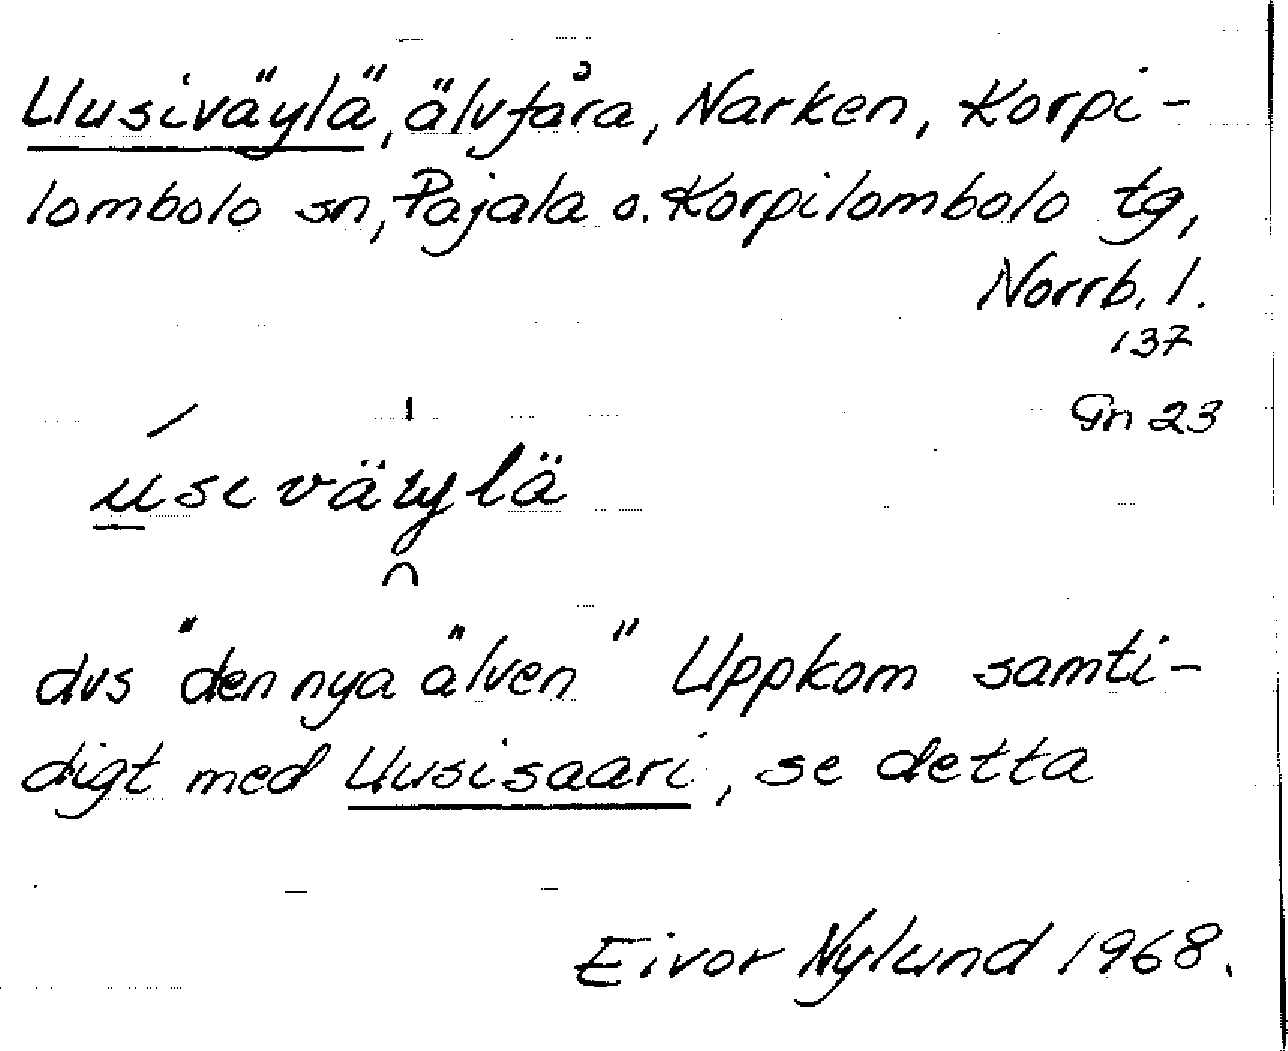 Uusiväylä, älvfåra, Narken, Korpi-
lombolo sn, Pajala o. Korpilombolo tg,
Norrb. l.
137
Gn 23
useväylä
dvs "den nya älven" Uppkom samti-
digt med Uusisaari, se detta
Eivor Nylund 1968.